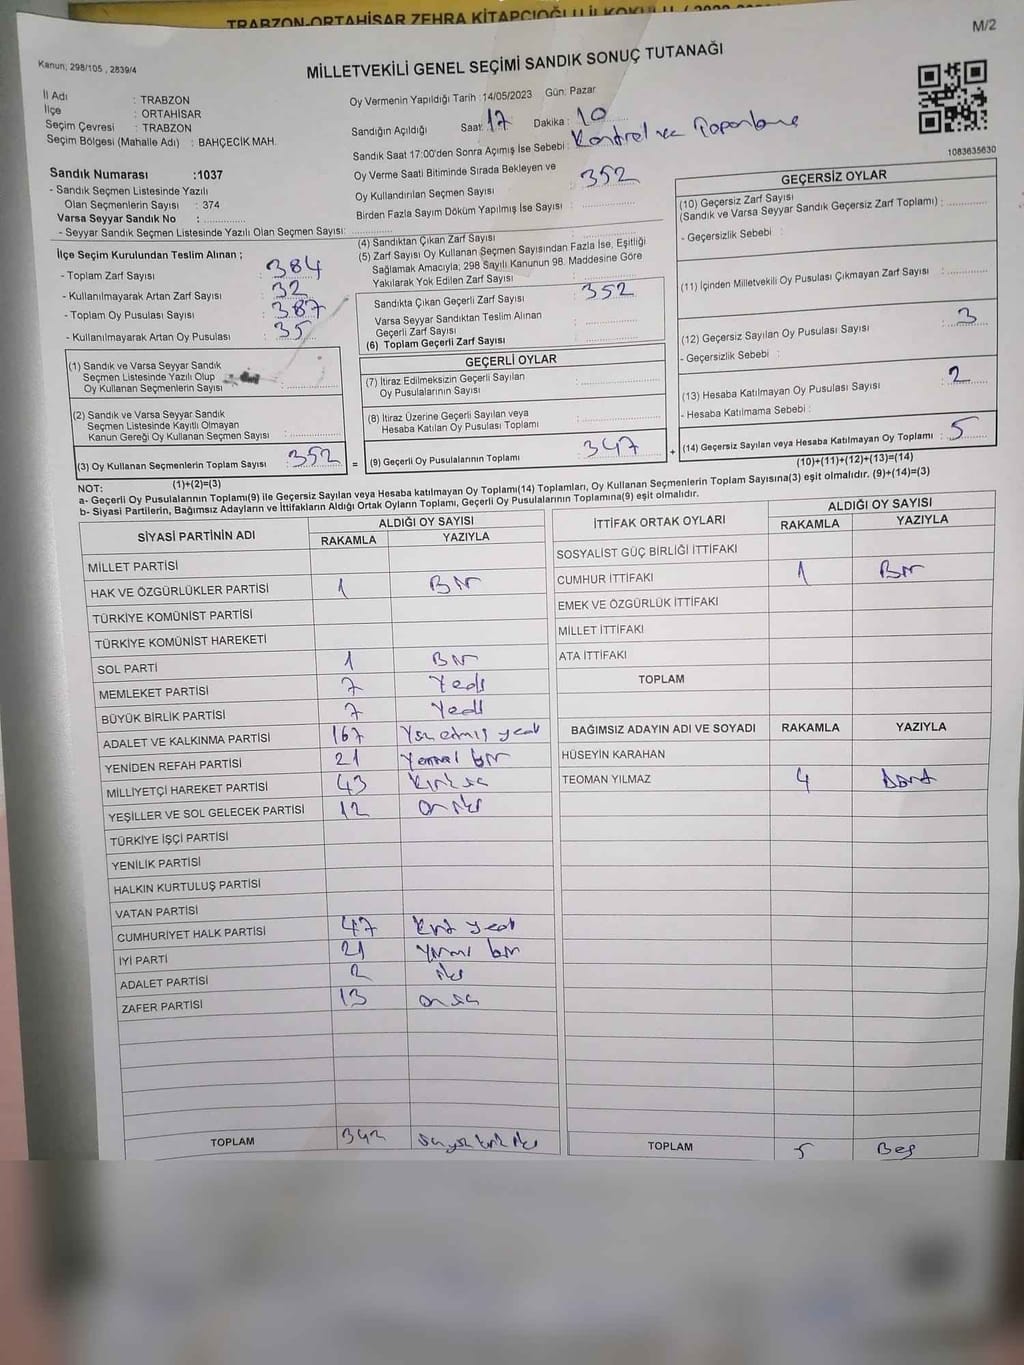 TRABZON-ORTAHİSAR ZEHRA KİTAPCIOĞLU İLKOKULU
M/2
Kanun; 298/105 , 2839/4
MİLLETVEKİLİ GENEL SEÇİMİ SANDIK SONUÇ TUTANAĞI
İl Adı : TRABZON
İlçe : ORTAHİSAR
Seçim Çevresi : TRABZON
Seçim Bölgesi (Mahalle Adı) : BAHÇECİK MAH.
Oy Vermenin Yapıldığı Tarih :14/05/2023 Gün: Pazar
Sandığın Açıldığı Saat: 17 Dakika : 10
Sandık Saat 17:00'den Sonra Açımış İse Sebebi : Kontrol ve
1083635630
Sandık Numarası :1037
- Sandık Seçmen Listesinde Yazılı
Olan Seçmenlerin Sayısı : 374
Varsa Seyyar Sandık No :
- Seyyar Sandık Seçmen Listesinde Yazılı Olan Seçmen Sayısı:
Oy Verme Saati Bitiminde Sırada Bekleyen ve
Oy Kullandırılan Seçmen Sayısı : 352
Birden Fazla Sayım Döküm Yapılmış İse Sayısı :
İlçe Seçim Kurulundan Teslim Alınan ;
- Toplam Zarf Sayısı : 384
- Kullanılmayarak Artan Zarf Sayısı : 32
- Toplam Oy Pusulası Sayısı : 387
- Kullanılmayarak Artan Oy Pusulası : 35
(1) Sandık ve Varsa Seyyar Sandık
Seçmen Listesinde Yazılı Olup
Oy Kullanan Seçmenlerin Sayısı :
(2) Sandık ve Varsa Seyyar Sandık
Seçmen Listesinde Kayıtlı Olmayan
Kanun Gereği Oy Kullanan Seçmen Sayısı :
(3) Oy Kullanan Seçmenlerin Toplam Sayısı : 352 =
(1)+(2)=(3)
(4) Sandıktan Çıkan Zarf Sayısı :
(5) Zarf Sayısı Oy Kullanan Seçmen Sayısından Fazla İse, Eşitliği
Sağlamak Amacıyla; 298 Sayılı Kanunun 98. Maddesine Göre
Yakılarak Yok Edilen Zarf Sayısı :
Sandıkta Çıkan Geçerli Zarf Sayısı : 352
Varsa Seyyar Sandıktan Teslim Alınan
Geçerli Zarf Sayısı :
(6) Toplam Geçerli Zarf Sayısı :
GEÇERLİ OYLAR
(7) İtiraz Edilmeksizin Geçerli Sayılan
Oy Pusulalarının Sayısı :
(8) İtiraz Üzerine Geçerli Sayılan veya
Hesaba Katılan Oy Pusulası Toplamı :
(9) Geçerli Oy Pusulalarının Toplamı : 347 +
GEÇERSİZ OYLAR
(10) Geçersiz Zarf Sayısı
(Sandık ve Varsa Seyyar Sandık Geçersiz Zarf Toplamı) :
- Geçersizlik Sebebi :
(11) İçinden Milletvekili Oy Pusulası Çıkmayan Zarf Sayısı :
(12) Geçersiz Sayılan Oy Pusulası Sayısı : 3
- Geçersizlik Sebebi :
(13) Hesaba Katılmayan Oy Pusulası Sayısı : 2
- Hesaba Katılmama Sebebi :
(14) Geçersiz Sayılan veya Hesaba Katılmayan Oy Toplamı : 5
(10)+(11)+(12)+(13)=(14)
NOT:
a- Geçerli Oy Pusulalarının Toplamı(9) ile Geçersiz Sayılan veya Hesaba katılmayan Oy Toplamı(14) Toplamları, Oy Kullanan Seçmenlerin Toplam Sayısına(3) eşit olmalıdır. (9)+(14)=(3)
b- Siyasi Partilerin, Bağımsız Adayların ve İttifakların Aldığı Ortak Oyların Toplamı, Geçerli Oy Pusulalarının Toplamına(9) eşit olmalıdır.
SİYASİ PARTİNİN ADI ALDIĞI OY SAYISI
RAKAMLA YAZIYLA
MİLLET PARTİSİ
HAK VE ÖZGÜRLÜKLER PARTİSİ 1 Bir
TÜRKİYE KOMÜNİST PARTİSİ
TÜRKİYE KOMÜNİST HAREKETİ
SOL PARTİ 1 Bir
MEMLEKET PARTİSİ 7 Yedi
BÜYÜK BİRLİK PARTİSİ 7 Yedi
ADALET VE KALKINMA PARTİSİ 167 Yüzaltmış yedi
YENİDEN REFAH PARTİSİ 21 Yirmi bir
MİLLİYETÇİ HAREKET PARTİSİ 43 Kırk üç
YEŞİLLER VE SOL GELECEK PARTİSİ 12 on iki
TÜRKİYE İŞÇİ PARTİSİ
YENİLİK PARTİSİ
HALKIN KURTULUŞ PARTİSİ
VATAN PARTİSİ
CUMHURİYET HALK PARTİSİ 47 Kırk yedi
İYİ PARTİ 21 Yirmi bir
ADALET PARTİSİ 2 iki
ZAFER PARTİSİ 13 on üç
TOPLAM 342 üçyüz kırk iki
İTTİFAK ORTAK OYLARI ALDIĞI OY SAYISI
RAKAMLA YAZIYLA
SOSYALİST GÜÇ BİRLİĞİ İTTİFAKI
CUMHUR İTTİFAKI 1 Bir
EMEK VE ÖZGÜRLÜK İTTİFAKI
MİLLET İTTİFAKI
ATA İTTİFAKI
TOPLAM
BAĞIMSIZ ADAYIN ADI VE SOYADI RAKAMLA YAZIYLA
HÜSEYİN KARAHAN
TEOMAN YILMAZ 4 Dört
TOPLAM 5 Beş